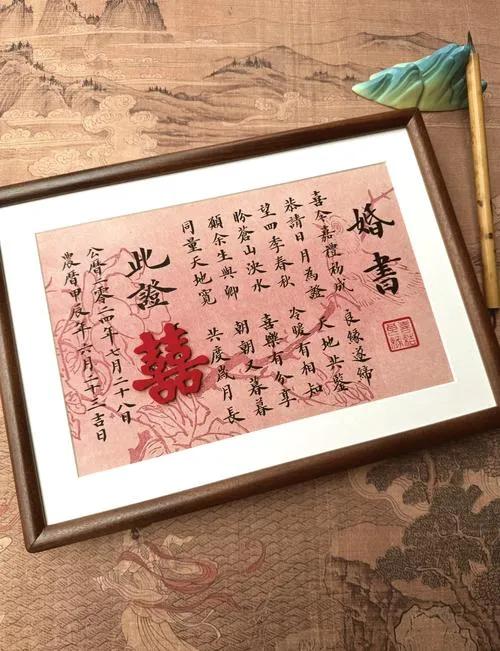 婚書
喜今嘉禮初成 良緣遂締
恭請日月為證 天地共鑒
望四季春秋 冷暖有相知
盼蒼山泱水 喜樂有分享
願余生與卿 朝朝又暮暮
同量天地寬 共度歲月長
此證
囍
公曆二零二四年 七月二十八日
農曆甲辰年 六月二十三吉日